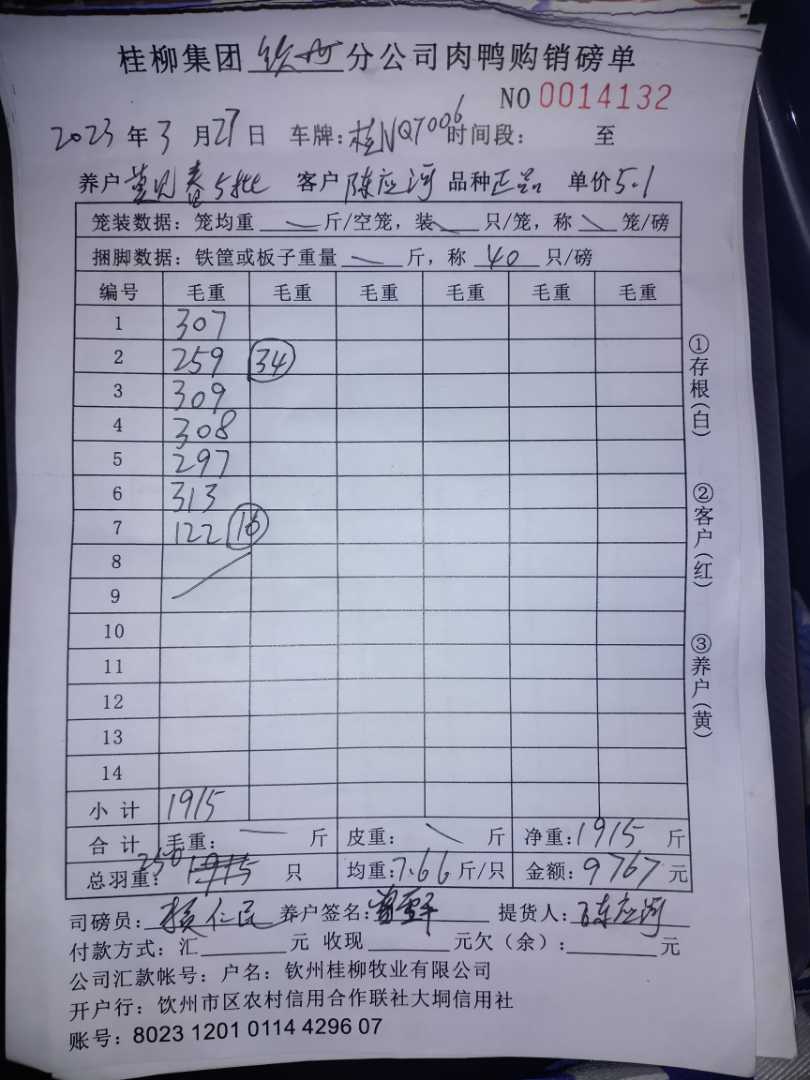 桂柳集团 钦州 分公司肉鸭购销磅单
NO 0014132
2023 年 3 月 27 日 车牌:桂NQ7006 时间段: 至
养户 5批 客户 陈应河 品种 正品 单价 5.1
笼装数据:笼均重 — 斤/空笼,装 — 只/笼,称 — 笼/磅
捆脚数据:铁筐或板子重量 — 斤,称 40 只/磅
编号 毛重 毛重 毛重 毛重 毛重 毛重
1 307
2 259 34
3 309
4 308
5 297
6 313
7 122 16
8
9
10
11
12
13
14
小计 1915
合计 毛重: — 斤 皮重: — 斤 净重: 1915 斤
总羽重: 250 1915 只 均重: 7.66 斤/只 金额: 9767 元
司磅员: 仁民 养户签名: 提货人: 陈应河
付款方式:汇 元 收现 元欠(余): 元
公司汇款帐号:户名:钦州桂柳牧业有限公司
开户行:钦州市区农村信用合作联社大垌信用社
账号:8023 1201 0114 4296 07
①存根(白)
②客户(红)
③养户(黄)